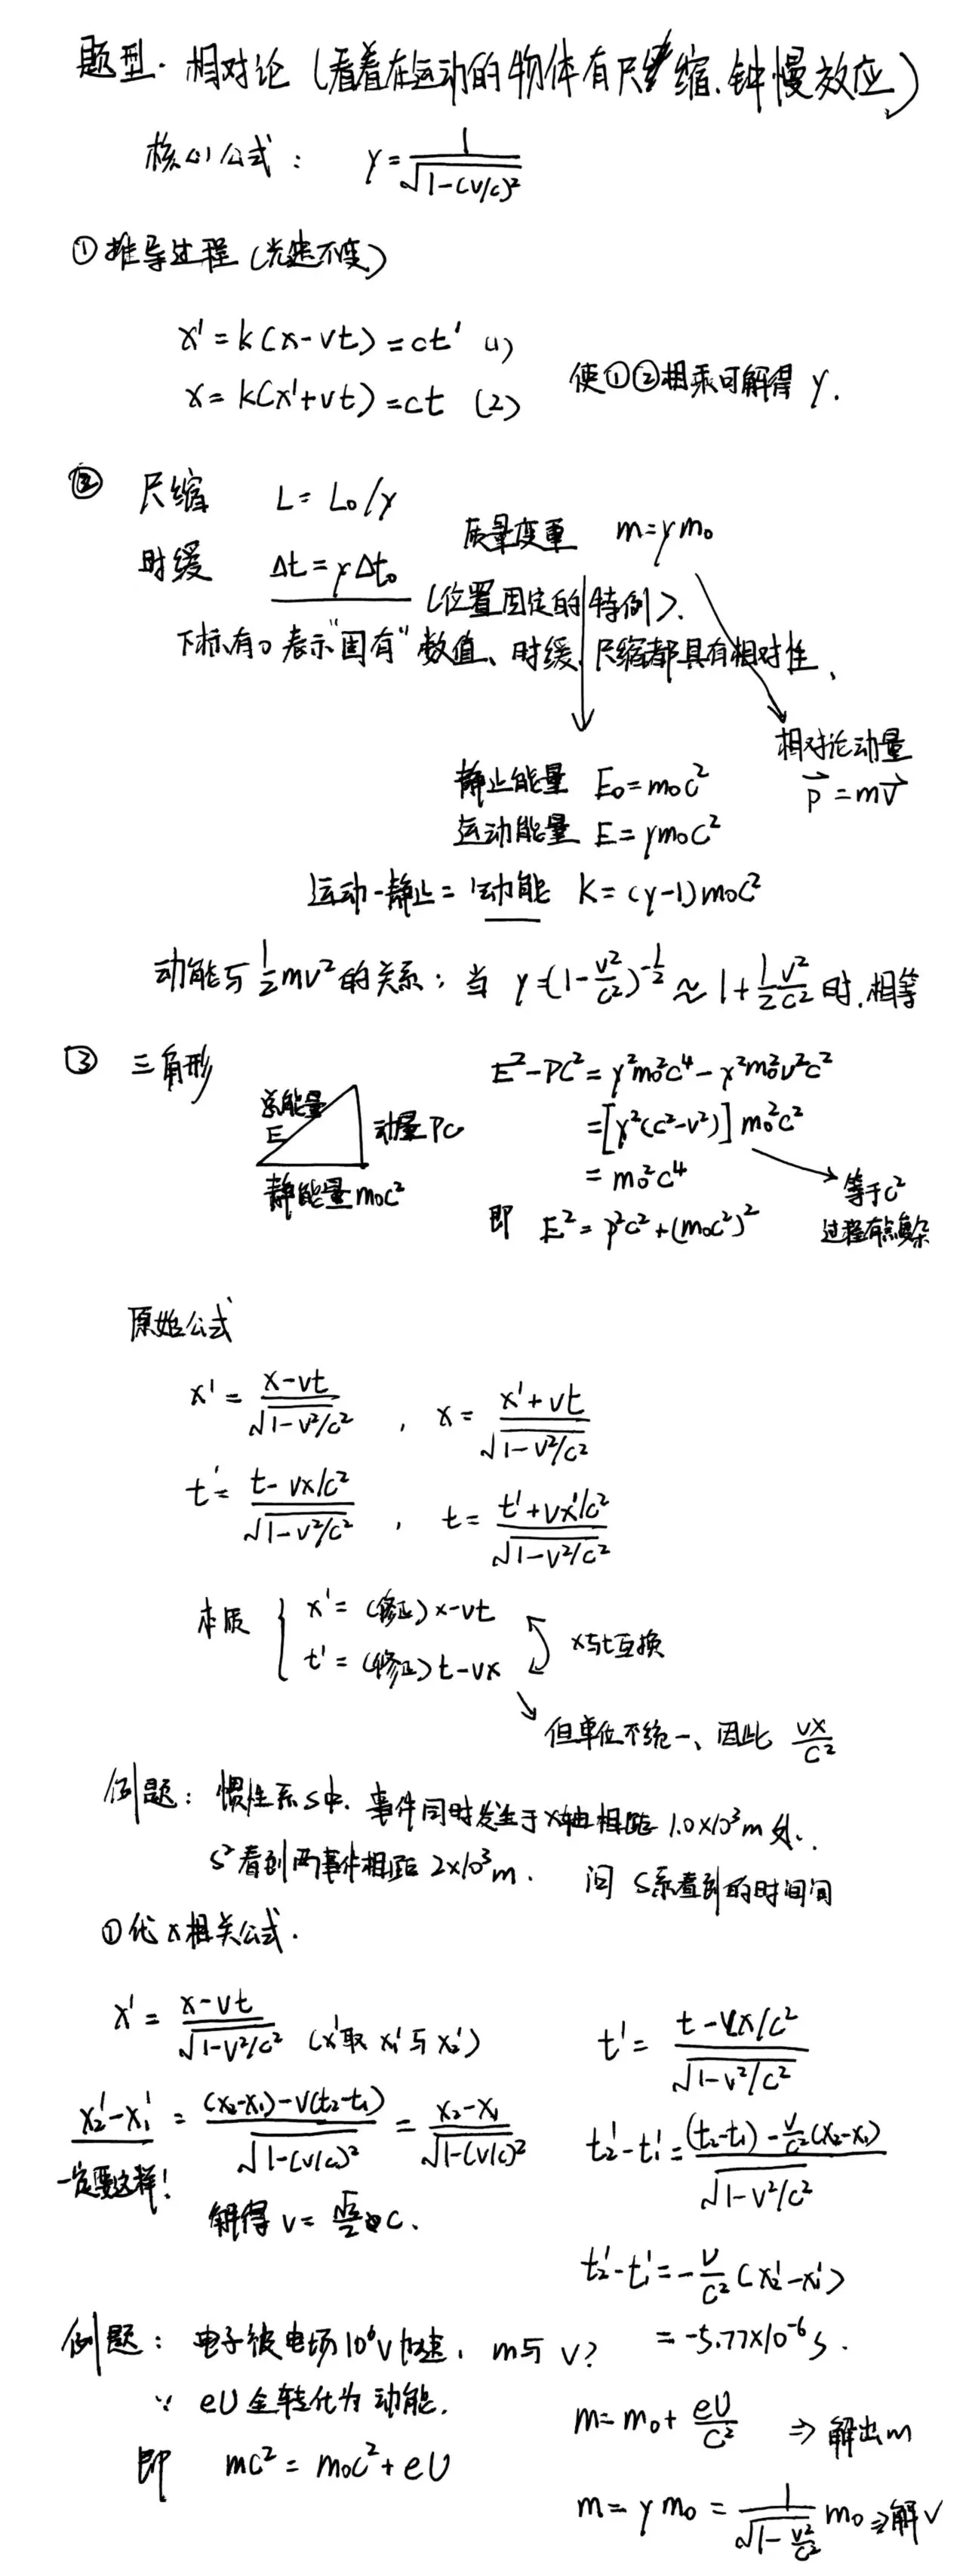 题型. 相对论(看着在运动的物体有尺缩、钟慢效应)
核心公式: γ = 1/√(1-(v/c)²)
① 推导过程(光速不变)
x' = k(x-vt) = ct' (1)
x = k(x'+vt) = ct (2)
使①②相乘可解得 γ.
② 尺缩 L = L₀/γ
质量变重 m = γm₀
时缓 Δt = γΔt₀
(位置固定的特例).
下标有0表示"固有"数值、时缓、尺缩都具有相对性、
相对论动量
p⃗ = mv⃗
静止能量 E₀ = m₀c²
运动能量 E = γm₀c²
运动-静止 = 动能 K = (γ-1)m₀c²
动能与 1/2 mv² 的关系: 当 γ = (1 - v²/c²)^(-1/2) ≈ 1 + 1/2 v²/c² 时.相等
③ 三角形
总能量
E
动量 PC
静能量 m₀c²
E² - PC² = γ²m₀²c⁴ - γ²m₀²v²c²
= [γ²(c²-v²)] m₀²c²
= m₀²c⁴
等于c²
过程有点复杂
即 E² = p²c² + (m₀c²)²
原始公式
x' = (x-vt)/√(1-v²/c²) , x = (x'+vt)/√(1-v²/c²)
t' = (t-vx/c²)/√(1-v²/c²) , t = (t'+vx'/c²)/√(1-v²/c²)
本质 { x' = (修正) x-vt
t' = (修正) t-vx
x与t互换
但单位不统一、因此 vx/c²
例题: 惯性系S中、事件同时发生于x轴相距 1.0×10³m 处.
S' 看到两事件相距 2×10³m. 问 S系看到的时间间
① 代x相关公式.
x' = (x-vt)/√(1-v²/c²) (x'取 x₁' 与 x₂')
x₂'-x₁' = ((x₂-x₁)-v(t₂-t₁))/√(1-(v/c)²) = (x₂-x₁)/√(1-(v/c)²)
一定要这样!
解得 v = √3/2 c.
t' = (t-vx/c²)/√(1-v²/c²)
t₂'-t₁' = ((t₂-t₁) - v/c²(x₂-x₁))/√(1-v²/c²)
t₂'-t₁' = -v/c² (x₂'-x₁')
= -5.77×10⁻⁶ s.
例题: 电子被电场10⁶V加速, m与 v?
∵ eU 全转化为动能.
即 mc² = m₀c² + eU
m = m₀ + eU/c² ⇒ 解出m
m = γm₀ = 1/√(1-v²/c²) m₀ ⇒ 解v